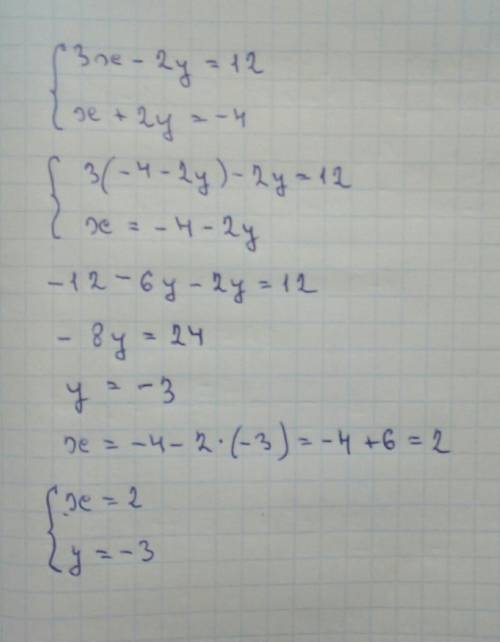 3x - 2y = 12
x + 2y = -4
3(-4 - 2y) - 2y = 12
x = -4 - 2y
-12 - 6y - 2y = 12
- 8y = 24
y = -3
x = -4 - 2·(-3) = -4 + 6 = 2
x = 2
y = -3